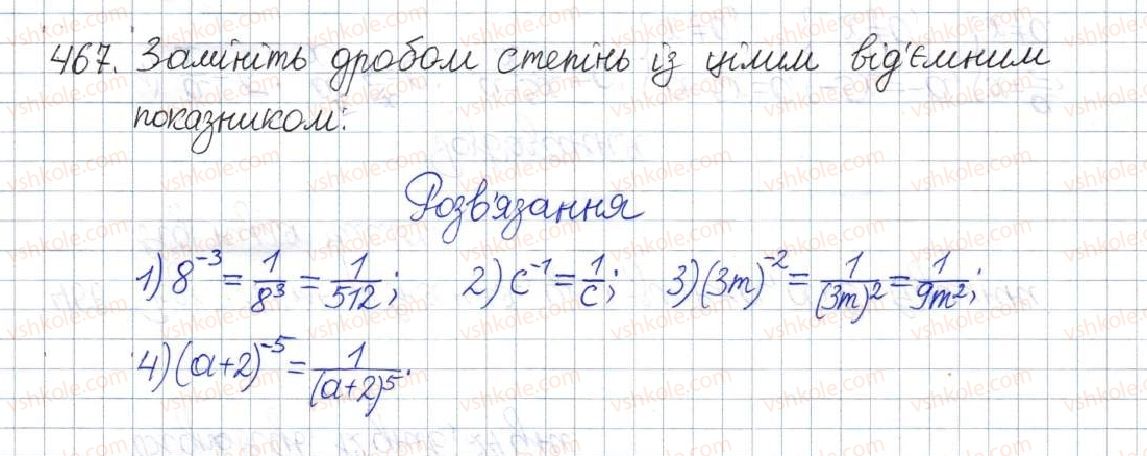 467. Замініть дробом степінь із цілим від'ємним
показником:
Розв'язання
1) 8^{-3} = \frac{1}{8^3} = \frac{1}{512}; 2) c^{-1} = \frac{1}{c}; 3) (3m)^{-2} = \frac{1}{(3m)^2} = \frac{1}{9m^2};
4) (a+2)^{-5} = \frac{1}{(a+2)^5}.